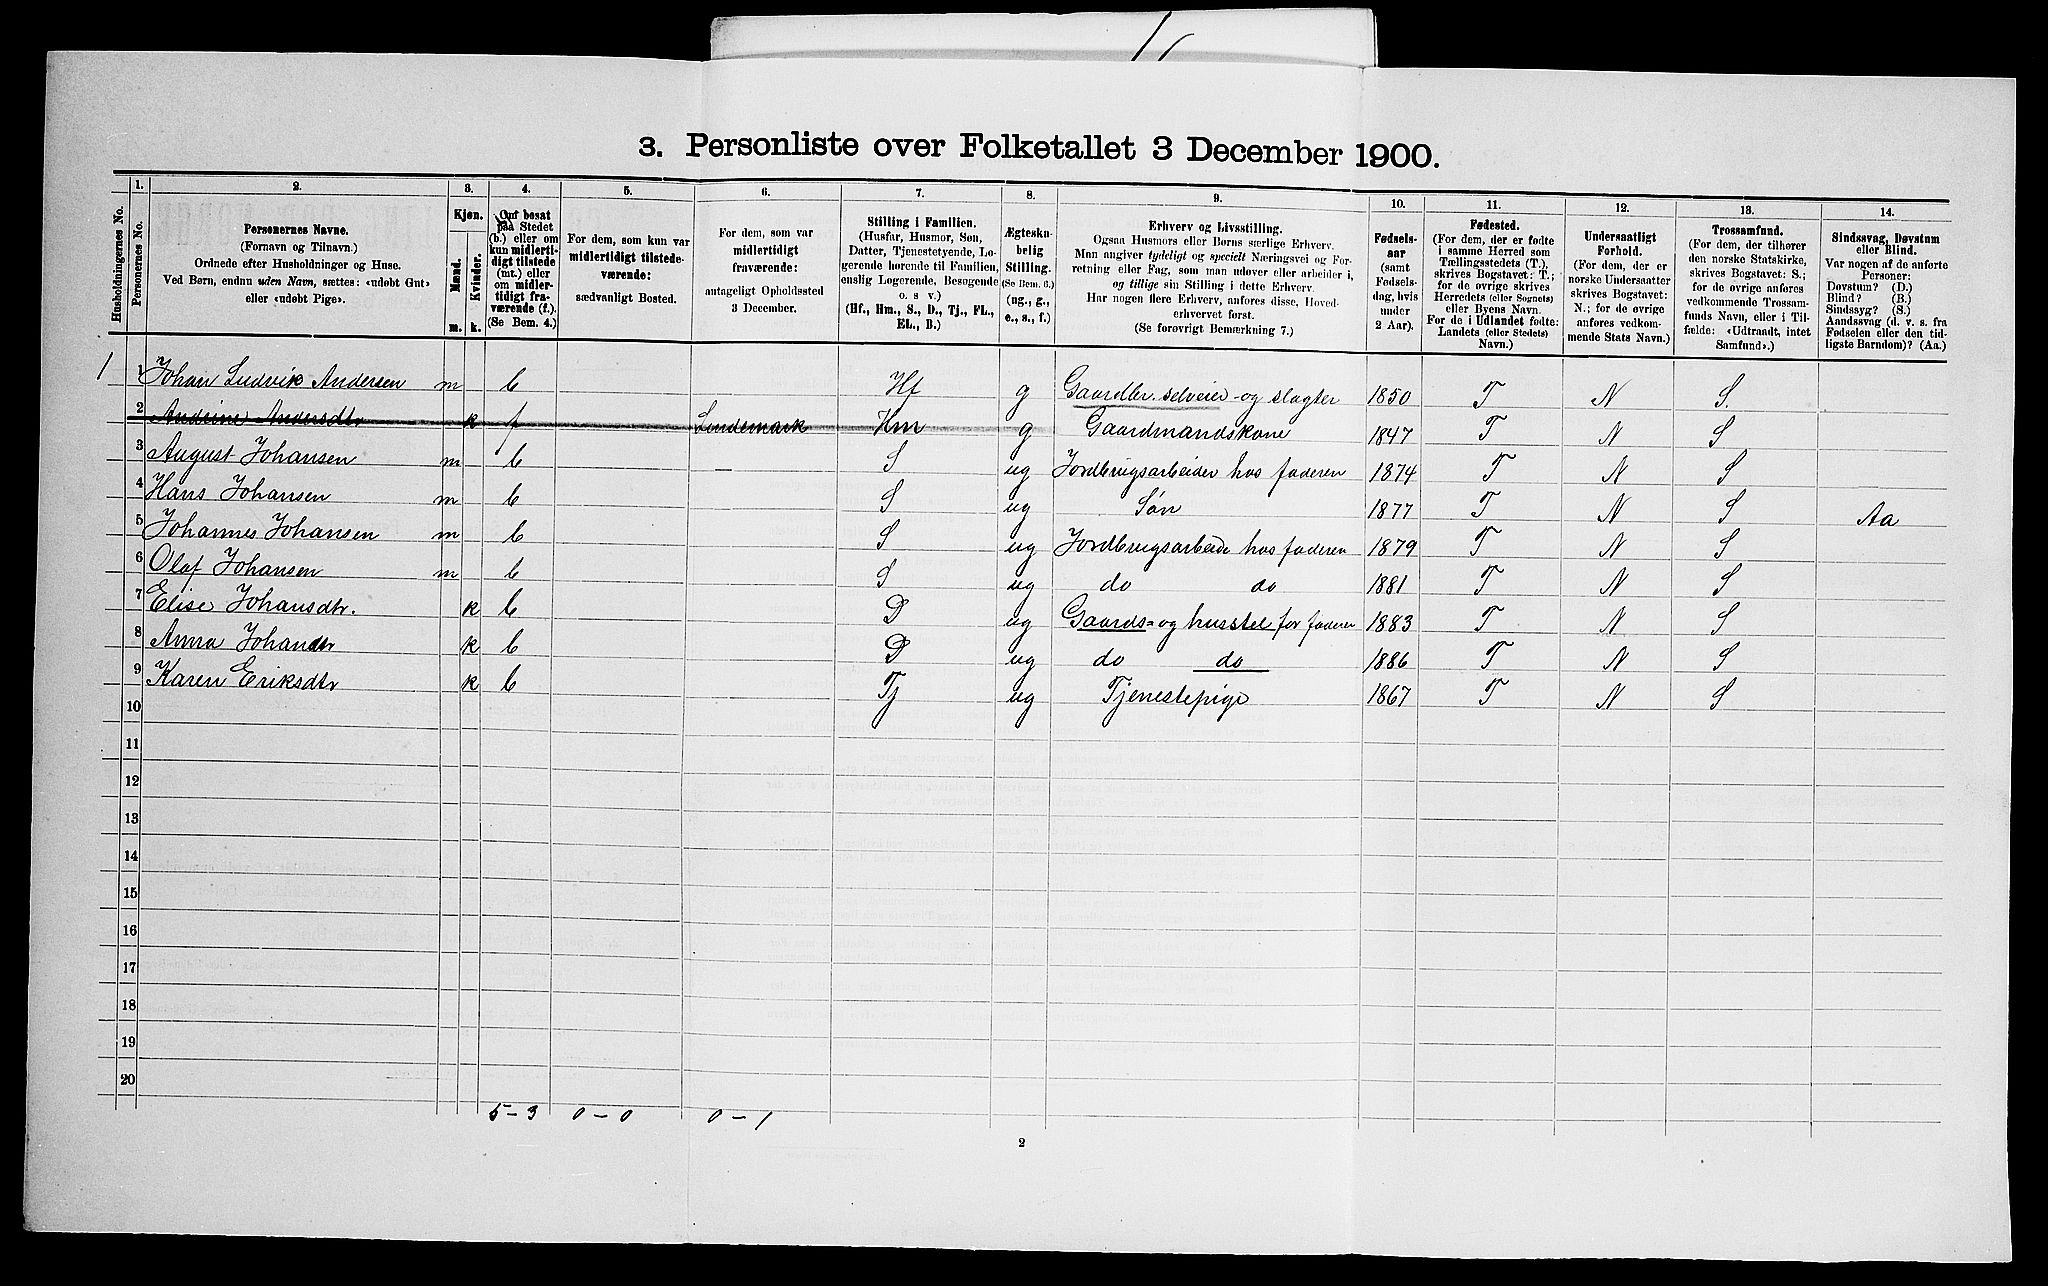 3. Personliste over Folketallet 3 December 1900.
1. 2. 3. 4. 5. 6. 7. 8. 9. 10. 11. 12. 13. 14.
Husholdningernes No.
Personernes No.
Personernes Navne.
(Fornavn og Tilnavn.)
Ordnede efter Husholdninger og Huse.
Ved Børn, endnu uden Navn, sættes: «udøbt Gut»
eller «udøbt Pige».
Kjøn.
Mænd.
Kvinder.
m. k.
Om bosat
paa Stedet
(b.) eller om
kun midlerti-
digt tilstede
(mt.) eller
om midler-
tidigt fra-
værende (f.).
(Se Bem. 4.)
For dem, som kun var
midlertidigt tilstede-
værende:
sædvanligt Bosted.
For dem, som var
midlertidigt
fraværende:
antageligt Opholdssted
3 December.
Stilling i Familien.
(Husfar, Husmor, Søn,
Datter, Tjenestetyende, Lo-
gerende hørende til Familien,
enslig Logerende, Besøgende
o. s v.)
(Hf., Hm., S., D., Tj., FL.,
EL., B.)
Ægtesku-
belig
Stilling.
(Se Bem. 6.)
(ug., g.,
e., s., f.)
Erhverv og Livsstilling.
Ogsaa Husmors eller Børns særlige Erhverv.
Man angiver tydeligt og specielt Næringsvei og For-
retning eller Fag, som man udøver eller arbeider i,
og tillige sin Stilling i dette Erhverv.
Har nogen flere Erhverv, anføres disse, Hoved-
erhvervet først.
(Se forøvrigt Bemærkning 7.)
Fødsels-
aar
(samt
Fødsels-
dag, hvis
under
2 Aar).
Fødested.
(For dem, der er fødte
i samme Herred som
Tællingsstedets (T.),
skrives Bogstavet: T.;
for de øvrige skrives
Herredets (eller Sognets)
eller Byens Navn.
For de i Udlandet fødte:
Landets (eller Stedets)
Navn.)
Undersaatligt
Forhold.
(For dem, der er
norske Undersaatter
skrives Bogstavet:
N.; for de øvrige
anføres vedkom-
mende Stats Navn.)
Trossamfund.
(For dem, der tilhører
den norske Statskirke,
skrives Bogstavet: S.;
for de øvrige anføres
vedkommende Trossam-
funds Navn, eller i Til-
fælde: «Udtraadt, intet
Samfund».)
Sindssvag, Døvstum
eller Blind.
Var nogen af de anførte
Personer:
Døvstum? (D.)
Blind? (B.)
Sindssyg? (S.)
Aandssvag (d. v. s. fra
Fødselen eller den tid-
ligste Barndom)? (Aa.)
1 1 Johan Ludvik Andersen m b Hf g Gaardbr. selveier og slagter 1850 T N S.
2 Andrine Andersdtr k f Lindemark Hm g Gaardmandskone 1847 T N S
3 August Johansen m b S ug Jordbrugsarbeider hos faderen 1874 T N S
4 Hans Johansen m b S ug Søn 1877 T N S Aa
5 Johannes Johansen m b S ug Jordbrugsarbeide hos faderen 1879 T N S
6 Olaf Johansen m b S ug do do 1881 T N S
7 Elise Johansdtr. k b D ug Gaards= og husstel for faderen 1883 T N S
8 Anna Johansdtr k b D ug do do 1886 T N S
9 Karen Eriksdtr k b Tj ug Tjenestepige 1867 T N S
10
11
12
13
14
15
16
17
18
19
20
5 - 3 0 - 0 0 - 1
2